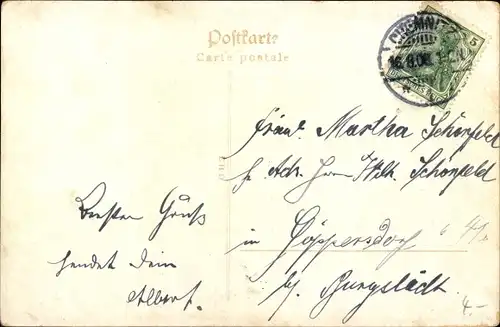 Postkarte
Carte postale
CHEMNITZ
16.8.06.
5
Fräul. Martha Schönfeld
p. Adr. Herrn Wilh. Schönfeld
Besten Gruß
sendet Dein
Albert.
in Göppersdorf
b/ Burgstädt.
4.-